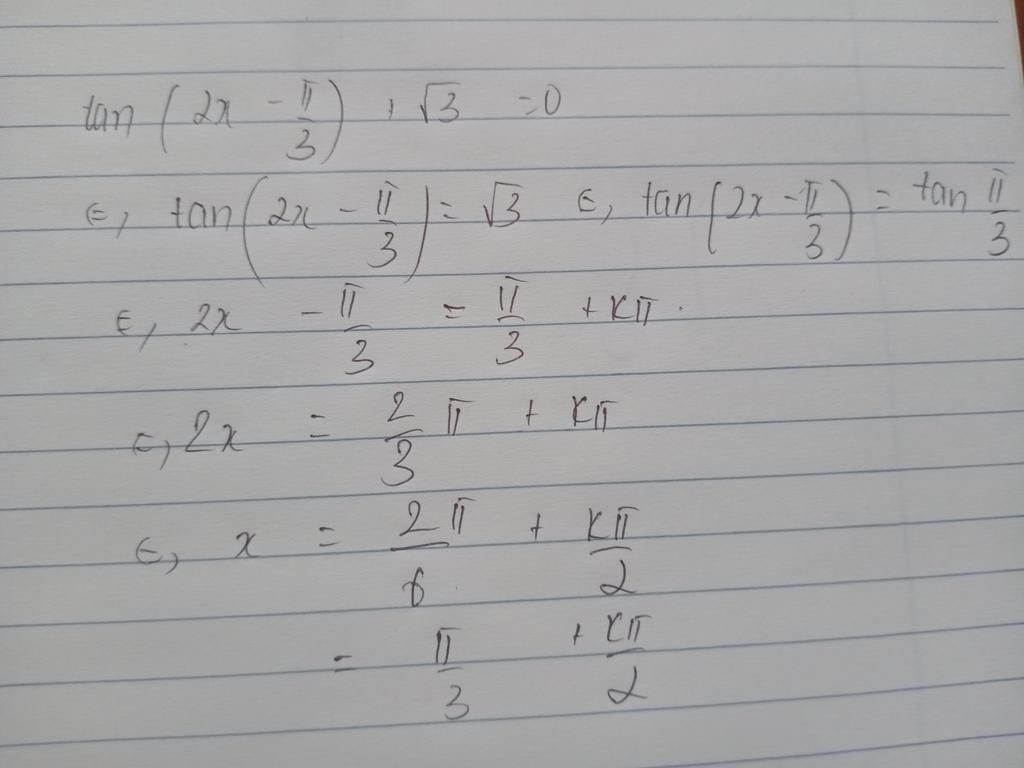 tan (2x - π/3) + √3 = 0
∈, tan(2x - π/3) = √3 ∈, tan(2x - π/3) = tan π/3
∈, 2x - π/3 = π/3 + Kπ.
∈, 2x = 2/3 π + Kπ
∈, x = 2π/6 + Kπ/2
= π/3 + Kπ/2